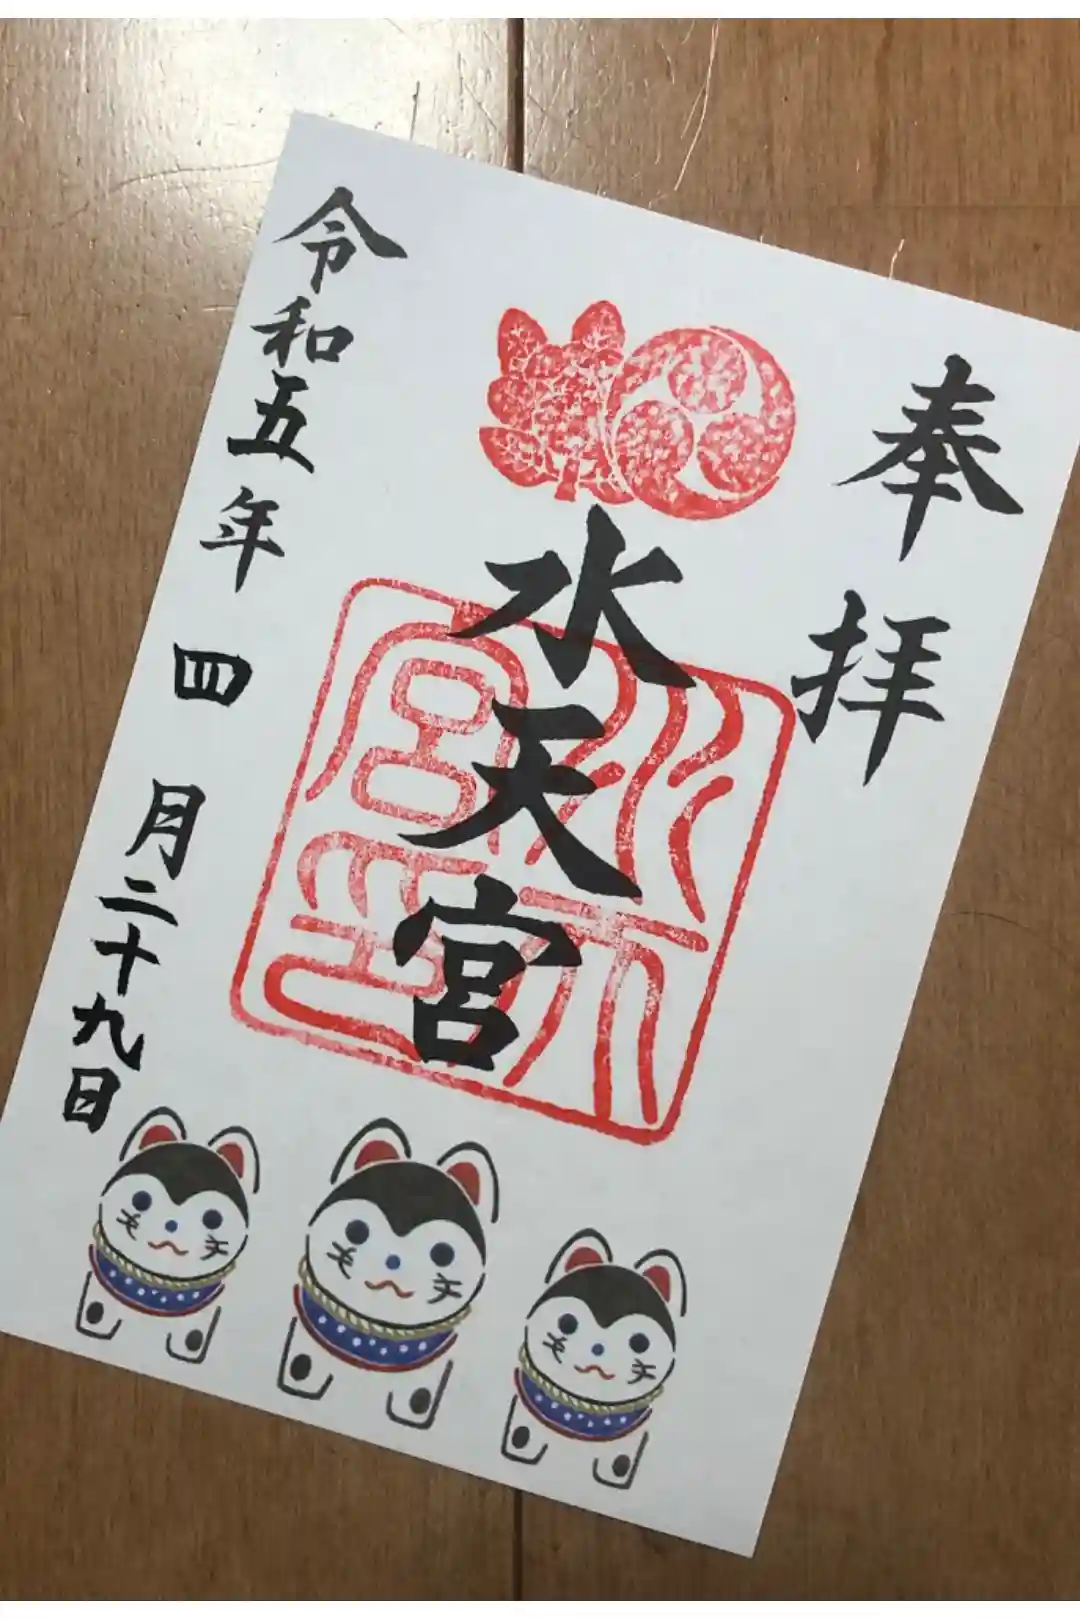 奉拝
水天宮
水天宮印
令和五年四月二十九日